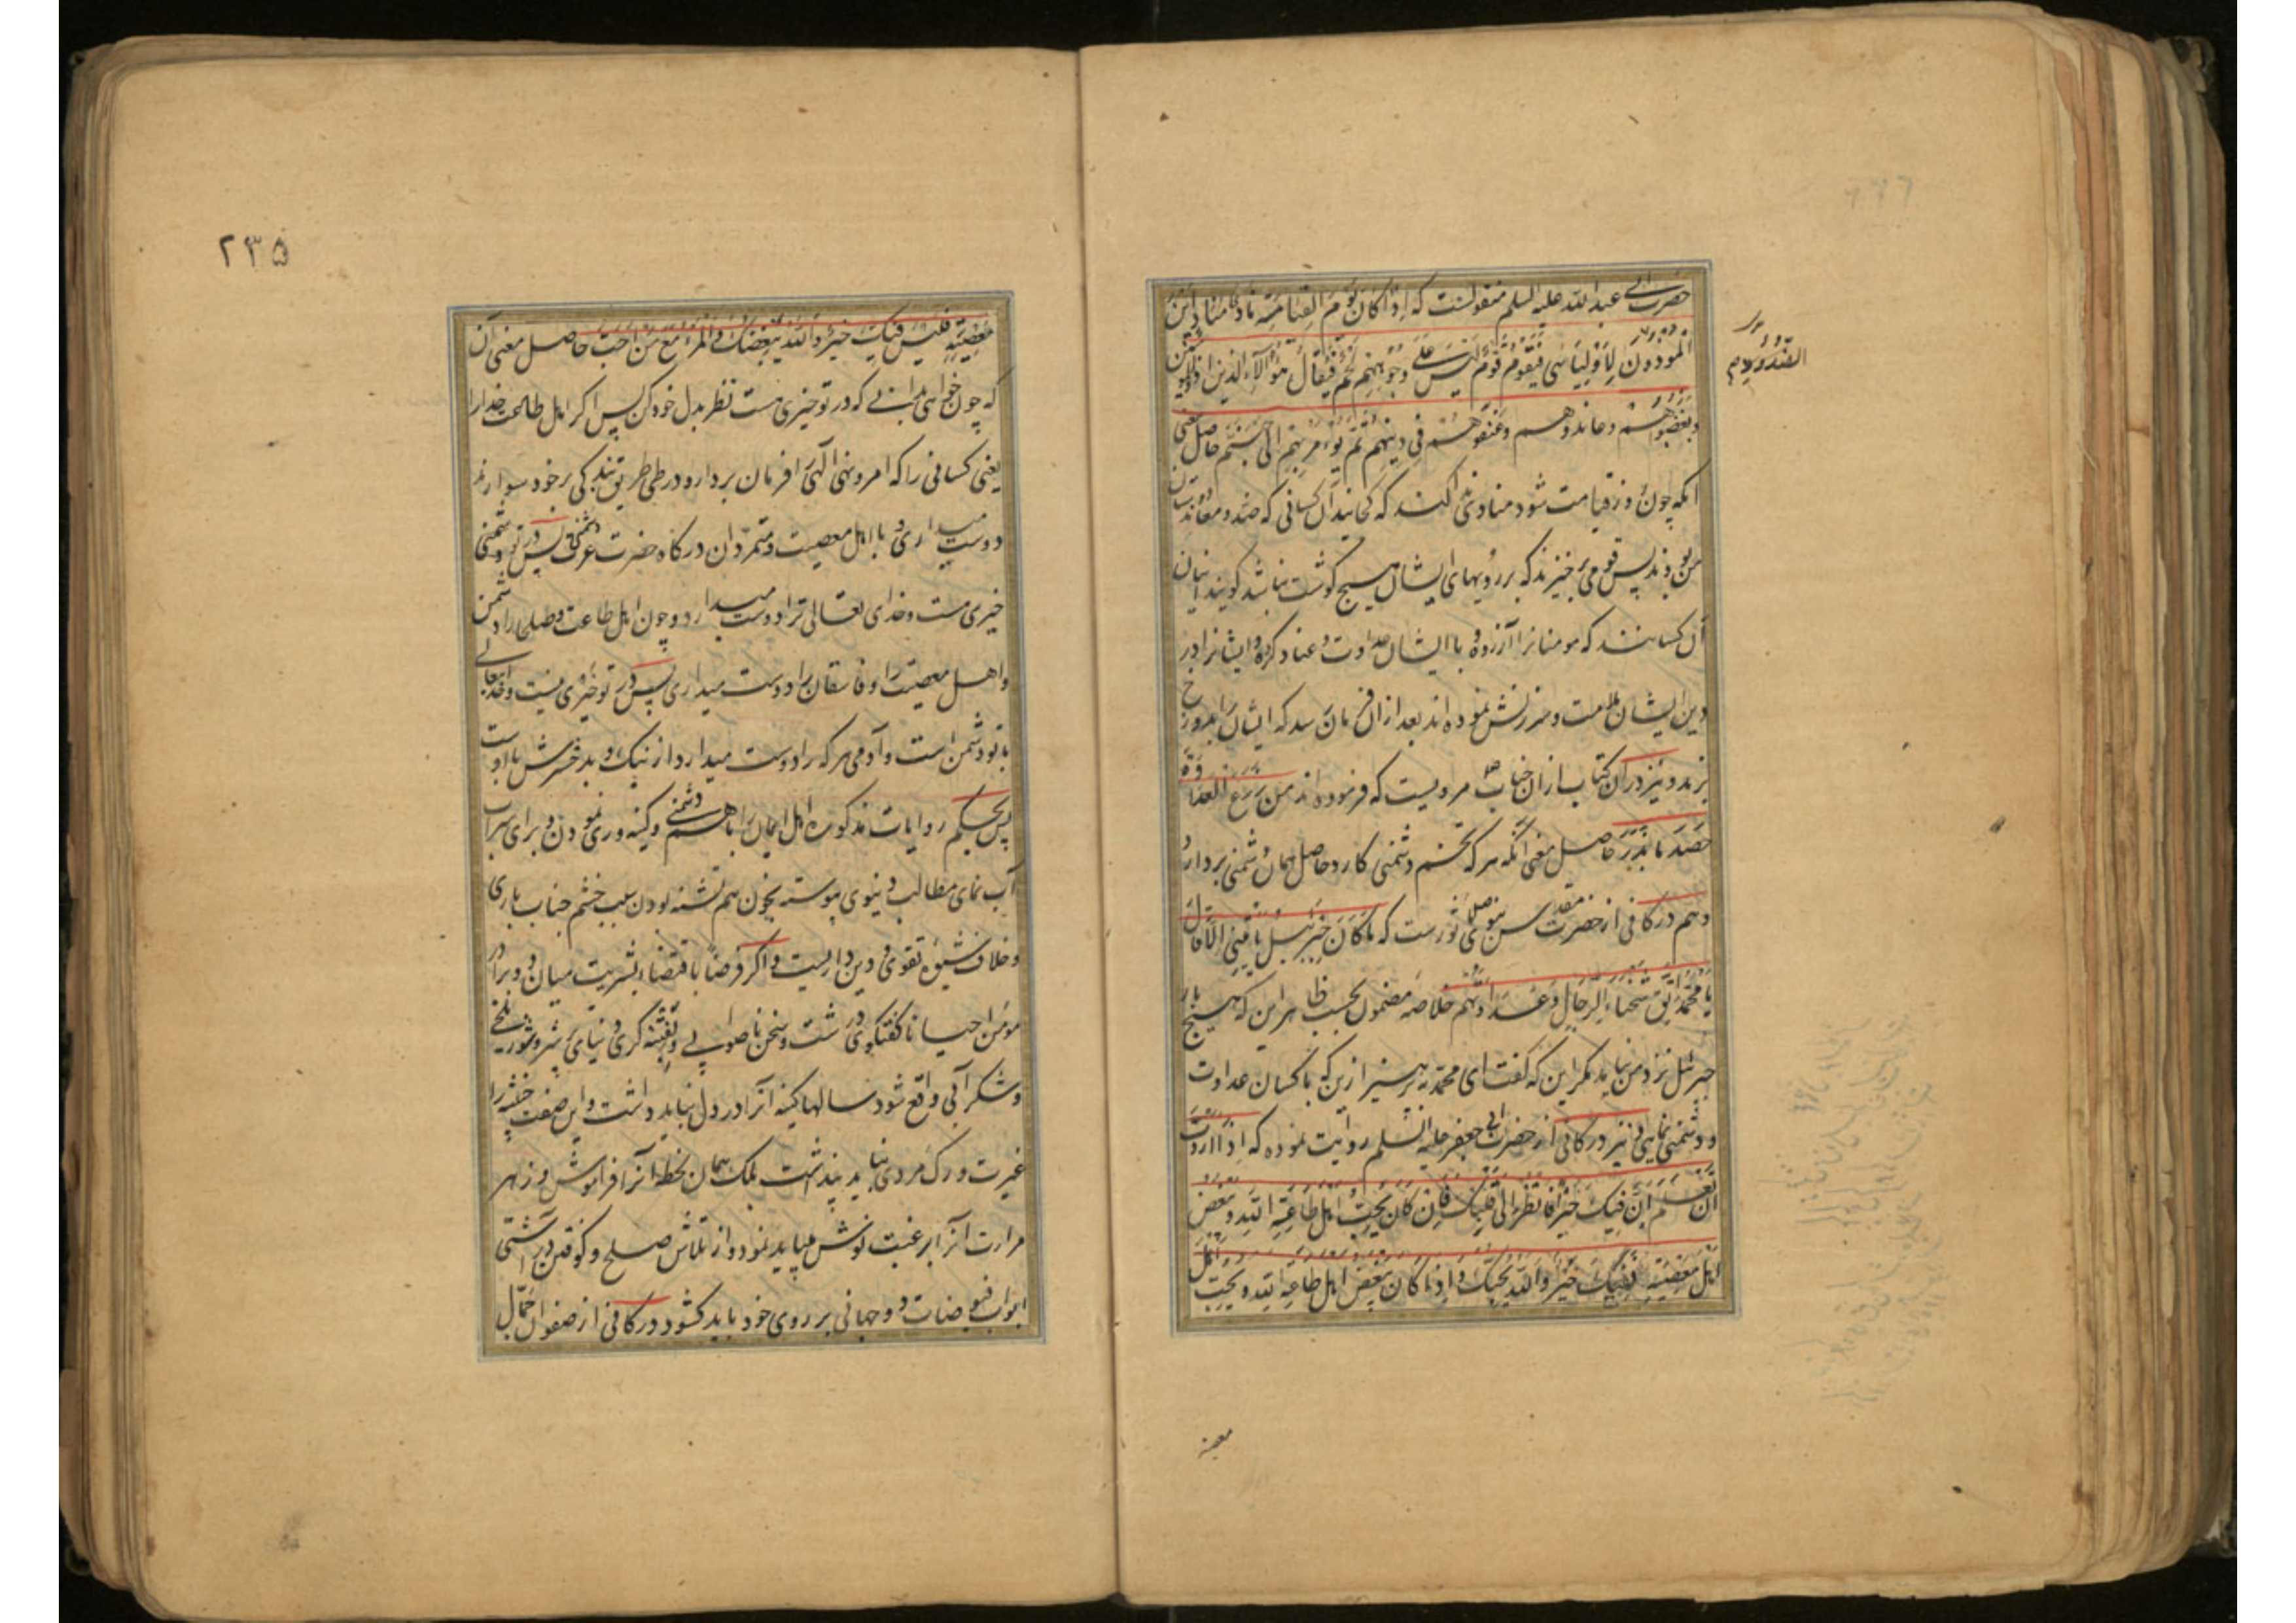 حضرت ابی عبدالله علیه السلم منقولست که اِذا کانَ یَوْمُ القِیامَةِ نادی مُنادٍ اَیْنَ
المُوذونَ لِاَوْلِیائی فَیَقُومُ قَوْمٌ لَیْسَ عَلی وُجُوهِهِمْ لَحْمٌ فَیُقالُ هٰؤُلآءِ الَّذینَ اذَوُا المُؤمِنینَ
الصّدُودُ
وَ نَصَبُوا لَهُمْ وعاندوهم وَعَنَّفُوهُمْ فی دینِهِمْ ثُمَّ یُؤْمَرُ بِهِمْ اِلی جَهَنَّمَ حاصل معنی
انکه چون روز قیامت شود منادی ندا کند که کجایند آن کسانی که ضد و معاند دوستان
من بودند پس قومی برخیزند که بر رویهای ایشان هیچ گوشت نباشد گویند اینان
آن کسانند که مومنانرا آزرده و با ایشان عداوت و عناد کرده و ایشانرا در
دین ایشان ملامت و سرزنش نموده‌اند بعد ازان فرمان رسد که ایشان را بدوزخ
برند و نیز دران کتاب ازان جناب مرویست که فرموده‌اند مَنْ زَرَعَ العَداوَةَ
حَصَدَ ما بَذَرَ حاصل معنی آنکه هر که تخم دشمنی کارد حاصل همان دشمنی بردارد
و هم در کافی از حضرت مقدس نبوی صلعم ماثورست که ما کانَ جِبْرَئیلُ یَأتینی اِلّا قالَ
یا مُحَمَّدُ اتَّقِ شَحْناءَ الرِّجالِ وَعَداوَتَهُم خلاصه مضمون بحسب ظاهر این که هیچ بار
جبرئیل نزد من نیاید مگر این که گفت ای محمد بپرهیز ازین که با کسان عداوت
و دشمنی نمایی و نیز در کافی از حضرت ابی جعفر علیه السلم روایت نموده که اِذا اَرَدْتَ
اَنْ تَعْلَمَ اَنَّ فیکَ خَیْراً فَانْظُرْ اِلی قَلْبِکَ فَاِن کانَ یُحِبُّ اَهْلَ طاعَةِ اللّٰهِ وَیُبْغِضُ
اَهْلَ مَعْصِیَتِهِ فَفیکَ خَیْرٌ وَاللّٰهُ یُحِبُّکَ وَاِذا کانَ یُبْغِضُ اَهْلَ طاعَةِ اللّٰهِ وَیُحِبُّ اَهْلَ
معصیته
۲۳۵
مَعْصِیَتِهِ فَلَیْسَ فیکَ خَیْرٌ وَاللّٰهُ یُبْغِضُکَ وَالمَرْءُ مَعَ مَنْ اَحَبَّ حاصل معنی آن
که چون خواهی بدانی که در تو خیری هست نظر بدل خود کن پس اگر اهل طاعت خدا را
یعنی کسانی را که امر و نهی الهی را فرمان بردار و در طی طریق بندگی بر خود سوارند
دوست میداری و با اهل معصیت و متمردان درگاه حضرت عزت دشمنی پس در تو
خیری هست و خدای تعالی ترا دوست میدارد و چون اهل طاعت و صلحا را دشمن
و اهل معصیت را و فاسقان را دوست میداری پس در تو خیری نیست و خدایتعالی
با تو دشمن است و آدمی هر که را دوست میدارد از نیک و بد حشرش با اوست
پس بحکم روایات مذکوره اهل ایمان را با هم دشمنی و کینه وری نمودن و برای سراب
آب نمای مطالب دنیوی پیوسته بخون هم تشنه بودن سبب خشم جناب باری
و خلاف شیوه تقوی و دین داریست و اگر فرضاً باقتضاء بشریت میان دو برادر
مومن احیانا گفتگوی درشت و سخن ناصوابی و بفتنه گری دنیای پر شر و شور تلخی
و شکرآبی واقع شود سالها کینه آنرا در دل نباید داشت و این صفت خبیثه را
غیرت و رگ مردی نباید پنداشت بلکه همان لحظه آنرا فراموش و زهر
مرارت آنرا برغبت نوش میباید نمود و از تلاش صلح و کوفتن در آشتی
ابواب فیوضات دو جهانی بر روی خود باید کشود در کافی از صفوان جمّال